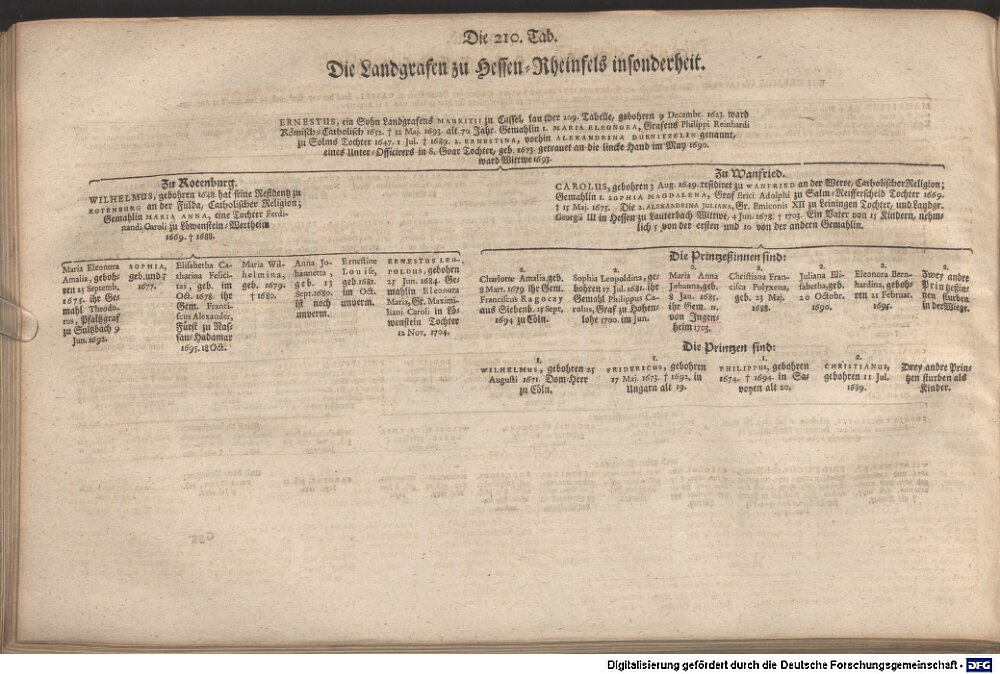 Die 210. Tab.
Die Landgrafen zu Hessen-Rheinfels insonderheit.
ERNESTUS, ein Sohn Landgrafens MAURITII zu Cassel, laut der 209. Tabelle, gebohren 9 Decembr. 1623. ward
Römisch-Catholisch 1652. † 12 Maj. 1693. alt 70 Jahr. Gemahlin 1. MARIA ELEONORA, Grafens Philippi Reinhardi
zu Solms Tochter 1647. 1 Jul. † 1689. 2. ERNESTINA, vorhin ALEXANDRINA DURNITZELIN genannt,
eines Unter-Officirers in S. Goar Tochter, geb. 1673. getrauet an die lincke Hand im May 1690.
ward Wittwe 1693.
Zu Rotenburg.
WILHELMUS, gebohren 1648. hat seine Residentz zu
ROTENBURG an der Fulda, Catholischer Religion;
Gemahlin MARIA ANNA, eine Tochter Ferdi-
nandi Caroli zu Löwenstein-Wertheim
1669. † 1688.
Zu Wanfried.
CAROLUS, gebohren 3 Aug. 1649. residiret zu WANFRIED an der Werre, Catholischer Religion;
Gemahlin 1. SOPHIA MAGDALENA, Graf Erici Adolphi zu Salm-Reifferscheid Tochter 1669.
† 15 Maj. 1675. Die 2. ALEXANDRINA JULIANA, Gr. Emiconis XII zu Leiningen Tochter, und Landgr.
Georgii III in Hessen zu Lauterbach Wittwe, 4 Jun. 1678. † 1703. Ein Vater von 15 Kindern, nehm-
lich 5 von der ersten und 10 von der andern Gemahlin.
Maria Eleonora
Amalia, geboh-
ren 25 Septemb.
1675. ihr Ge-
mahl Theodo-
rus, Pfaltzgraf
zu Sultzbach 9
Jun. 1692.
SOPHIA,
geb. und †
1677.
Elisabetha Ca-
tharina Felici-
tas, geb. im
Oct. 1678. ihr
Gem. Franci-
scus Alexander,
Fürst zu Nas-
sau-Hadamar
1695. 18 Oct.
Maria Wil-
helmina,
geb. 1679.
† 1680.
Anna Jo-
hannetta,
geb. 13
Sept. 1680.
ist noch
unverm.
Ernestine
Louise,
geb. 1681.
im Oct.
unverm.
ERNESTUS LEO-
POLDUS, gebohren
25 Jun. 1684. Ge-
mahlin Eleonora
Maria, Gr. Maximi-
liani Caroli in Lö-
wenstein Tochter
12 Nov. 1704.
Die Prinzeßinnen sind:
2.
Charlotte Amalia, geb.
8 Mart. 1679 ihr Gem.
Franciscus Ragoczy
aus Siebenb. 25 Sept.
1694 zu Cöln.
2.
Sophia Leopoldina, ge-
bohren 17 Jul. 1681. ihr
Gemahl Philippus Ca-
rolus, Graf zu Hohen-
lohe 1700. im Jun.
2.
Maria Anna
Johanna, geb.
8 Jan. 1685.
ihr Gem. N.
von Ingen-
heim 1703.
2.
Christiana Fran-
cisca Polyxena,
geb. 23 Maj.
1688.
2.
Juliana Eli-
sabetha, geb.
20 Octobr.
1690.
2.
Eleonora Bern-
hardina, geboh-
ren 21 Februar.
1695.
2.
Zwey andre
Printzeßinnen
sturben
in der Wiege.
Die Printzen sind:
1.
WILHELMUS, gebohren 25
Augusti 1671. Dom-Herr
zu Cöln.
1.
FRIDERICUS, gebohren
17 Maj. 1673. † 1692. in
Ungarn alt 19.
1.
PHILIPPUS, gebohren
1674. † 1694. in Sa-
voyen alt 20.
2.
CHRISTIANUS,
gebohren 11 Jul.
1689.
Drey andre Prin-
tzen sturben als
Kinder.
Digitalisierung gefördert durch die Deutsche Forschungsgemeinschaft - DFG